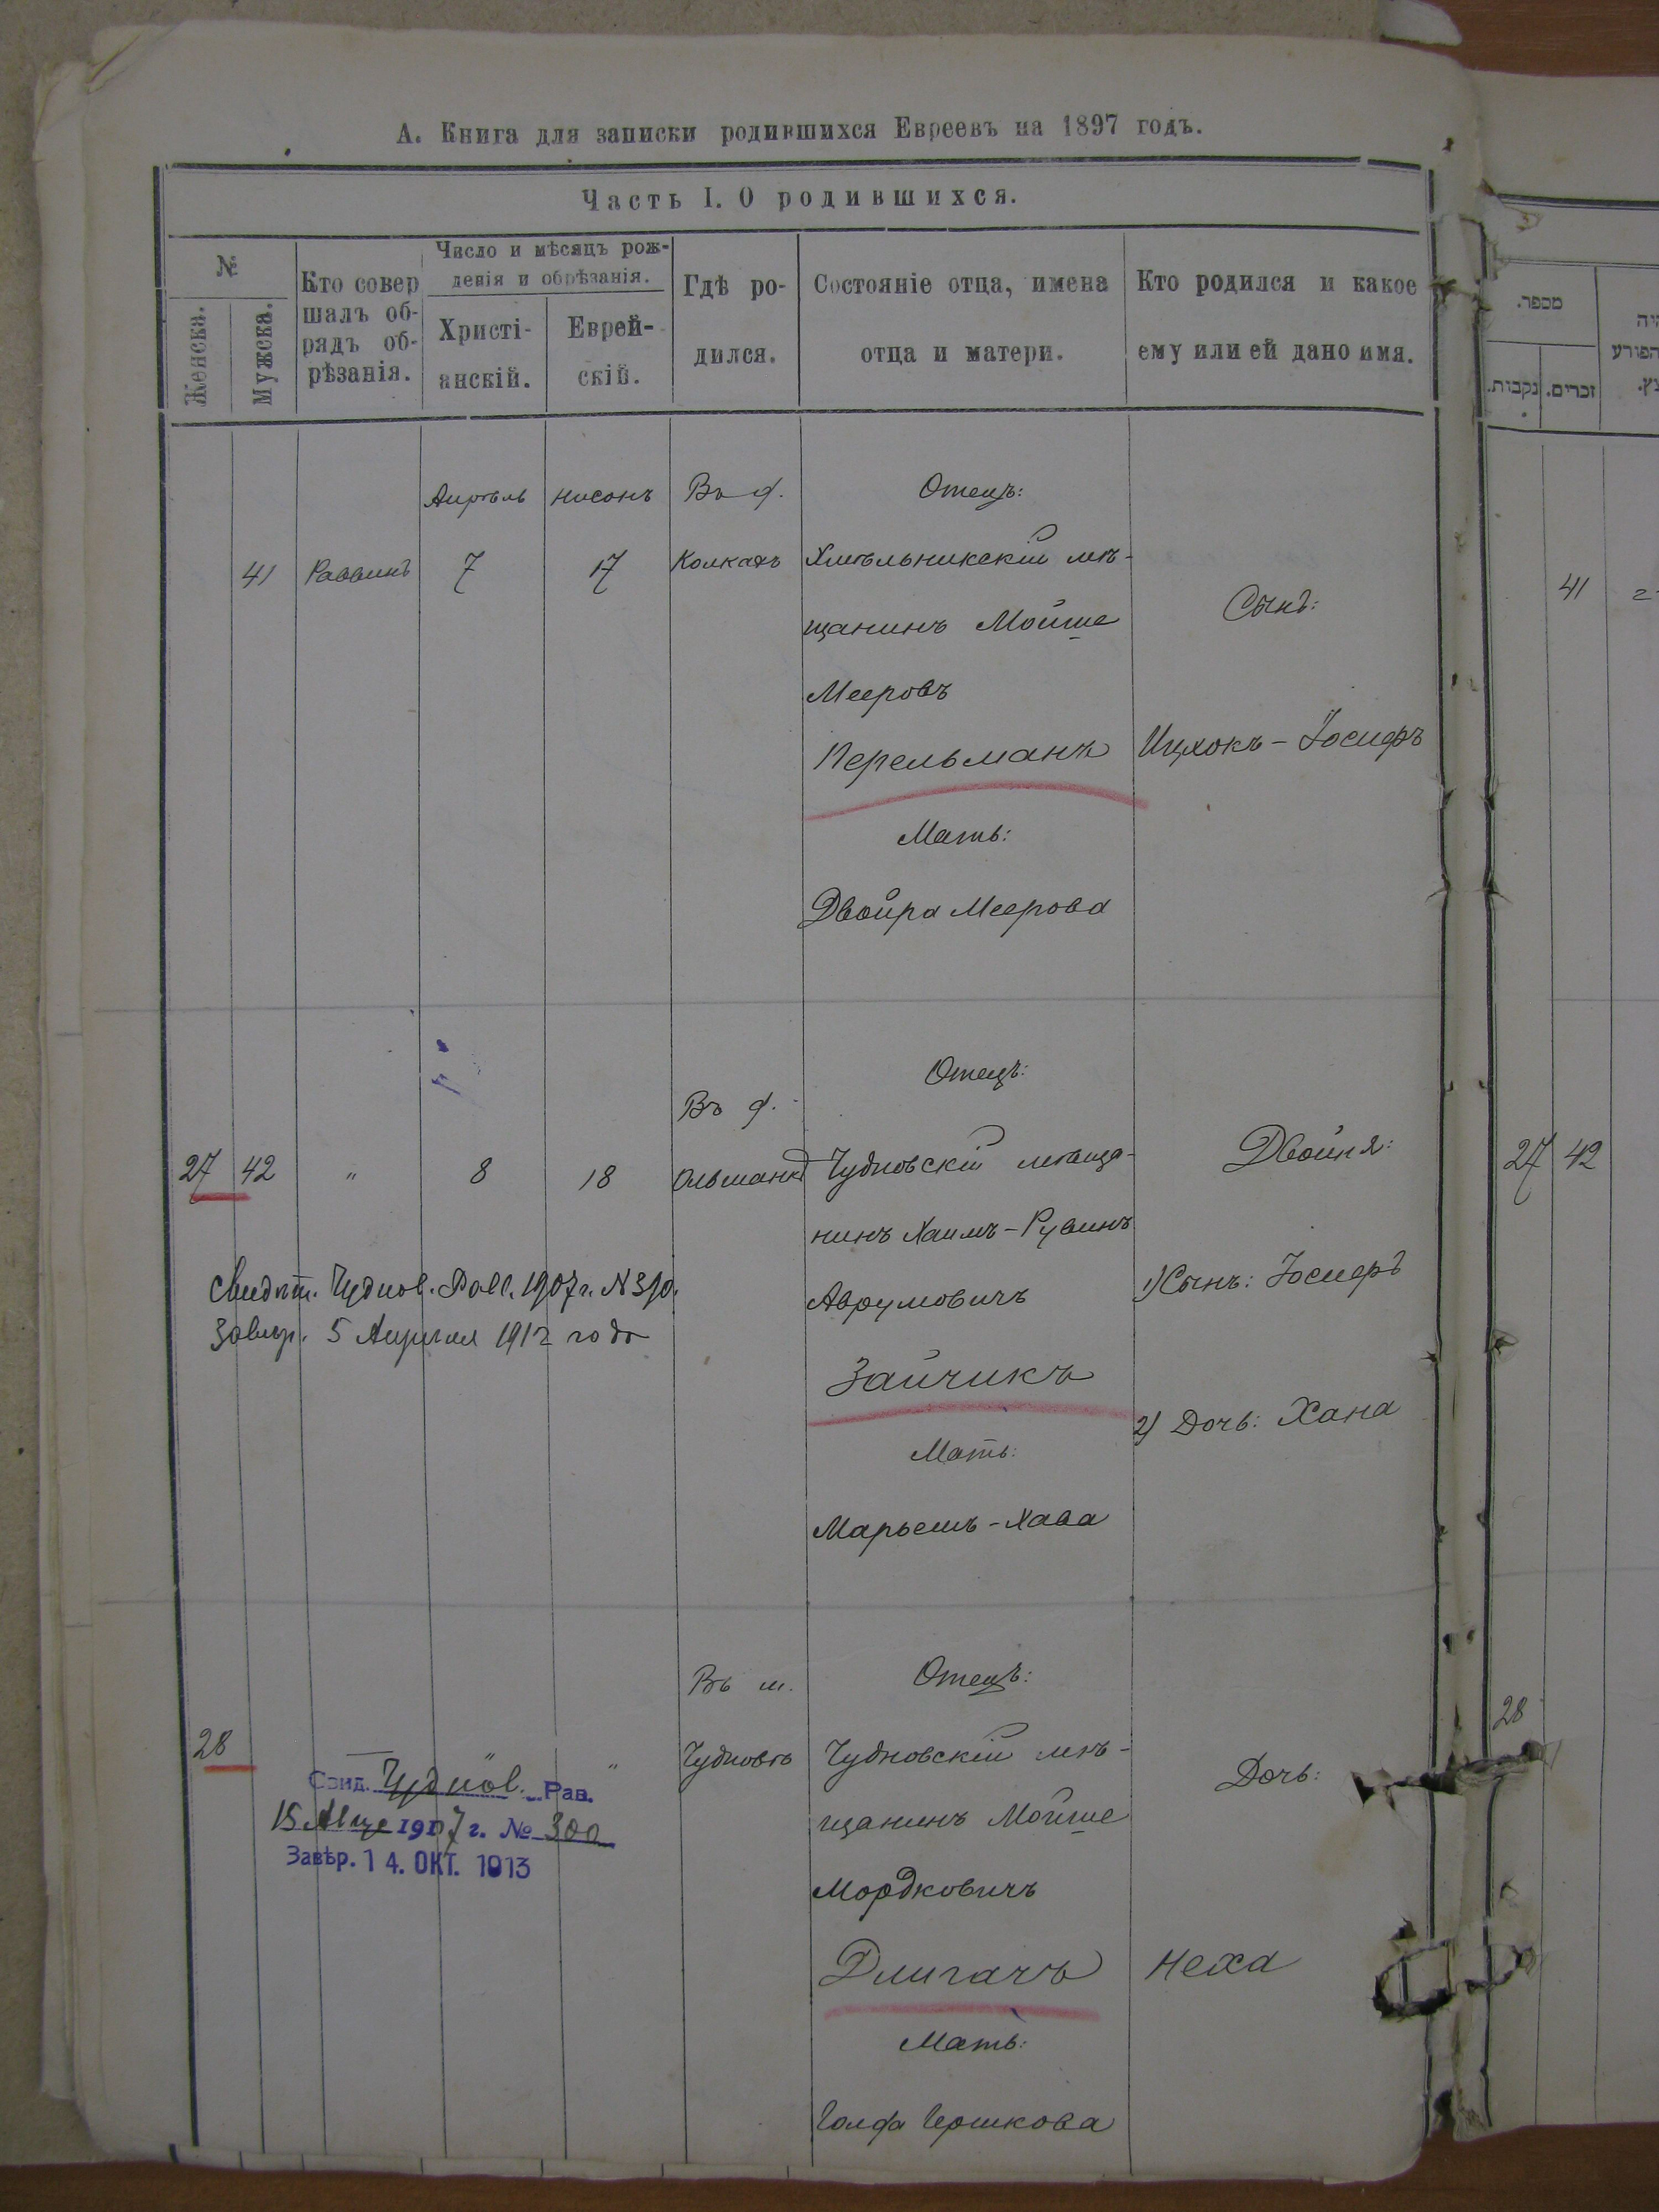 А. Книга для записки родившихся Евреевъ на 1897 годъ.
Часть I. О родившихся.
№
Женска.
Мужска.
Кто совер
шалъ об-
рядъ об-
рѣзанія.
Число и мѣсяцъ рож-
денія и обрѣзанія.
Христі-
анскій.
Еврей-
скій.
Гдѣ ро-
дился.
Состояніе отца, имена
отца и матери.
Кто родился и какое
ему или ей дано имя.
מספר.
נקבות.
זכרים.
Апрѣль
Нисонъ
Въ д.
Отецъ:
41
Раввинъ
7
17
Колкахъ
Хмѣльникскій мѣ-
щанинъ Мойше
Мееровъ
Перельманъ
Мать:
Двойра Меерова
Сынъ:
Ицхокъ-Іосифъ
41
27
42
"
8
18
Въ д.
Ольшанкѣ
Отецъ:
Чудновскій мѣща-
нинъ Хаимъ-Рувинъ
Аврумовичъ
Зайчикъ
Мать:
Марьемъ-Хава
Двойня:
1) Сынъ: Іосифъ
2) Дочь: Хана
27
42
Свидѣт. Чуднов. Равв. 1907 г. №
Завѣр. 5 Апрѣля 1912 года
28
"
"
Въ м.
Чудновѣ
Отецъ:
Чудновскій мѣ-
щанинъ Мойше
Мордковичъ
Длигачъ
Мать:
Гершкова
Дочь:
Неха
28
Свид. Чуднов. Рав.
15 1907 г. № 300
Завѣр. 14. ОКТ. 1913